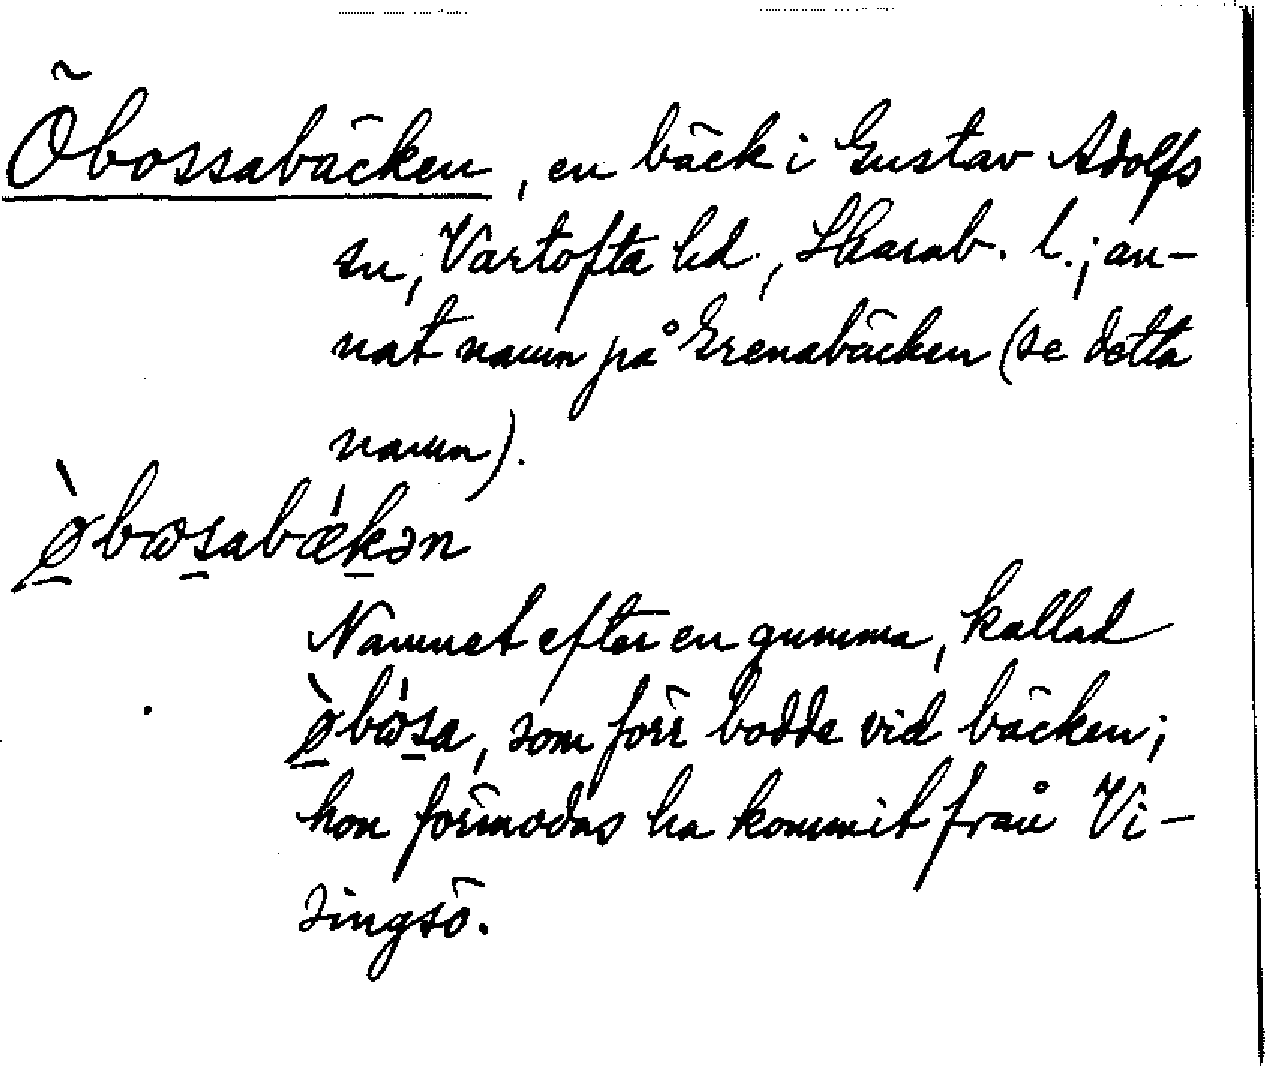 Öbossabäcken, en bäck i Gustav Adolfs
sn, Vartofta hd., Skarab. l.; an-
nat namn på Grenabäcken (se detta
namn).
ø̀bωsabǽkən
Namnet efter en gumma, kallad
ø̀bώsa, som förr bodde vid bäcken;
hon förmodas ha kommit från Vi-
singsö.